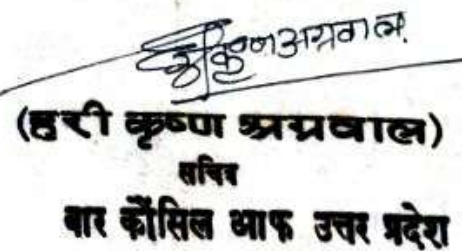 कृष्ण अग्रवाल
(हरी कृष्ण अग्रवाल)
सचिव
बार कौंसिल आफ उत्तर प्रदेश